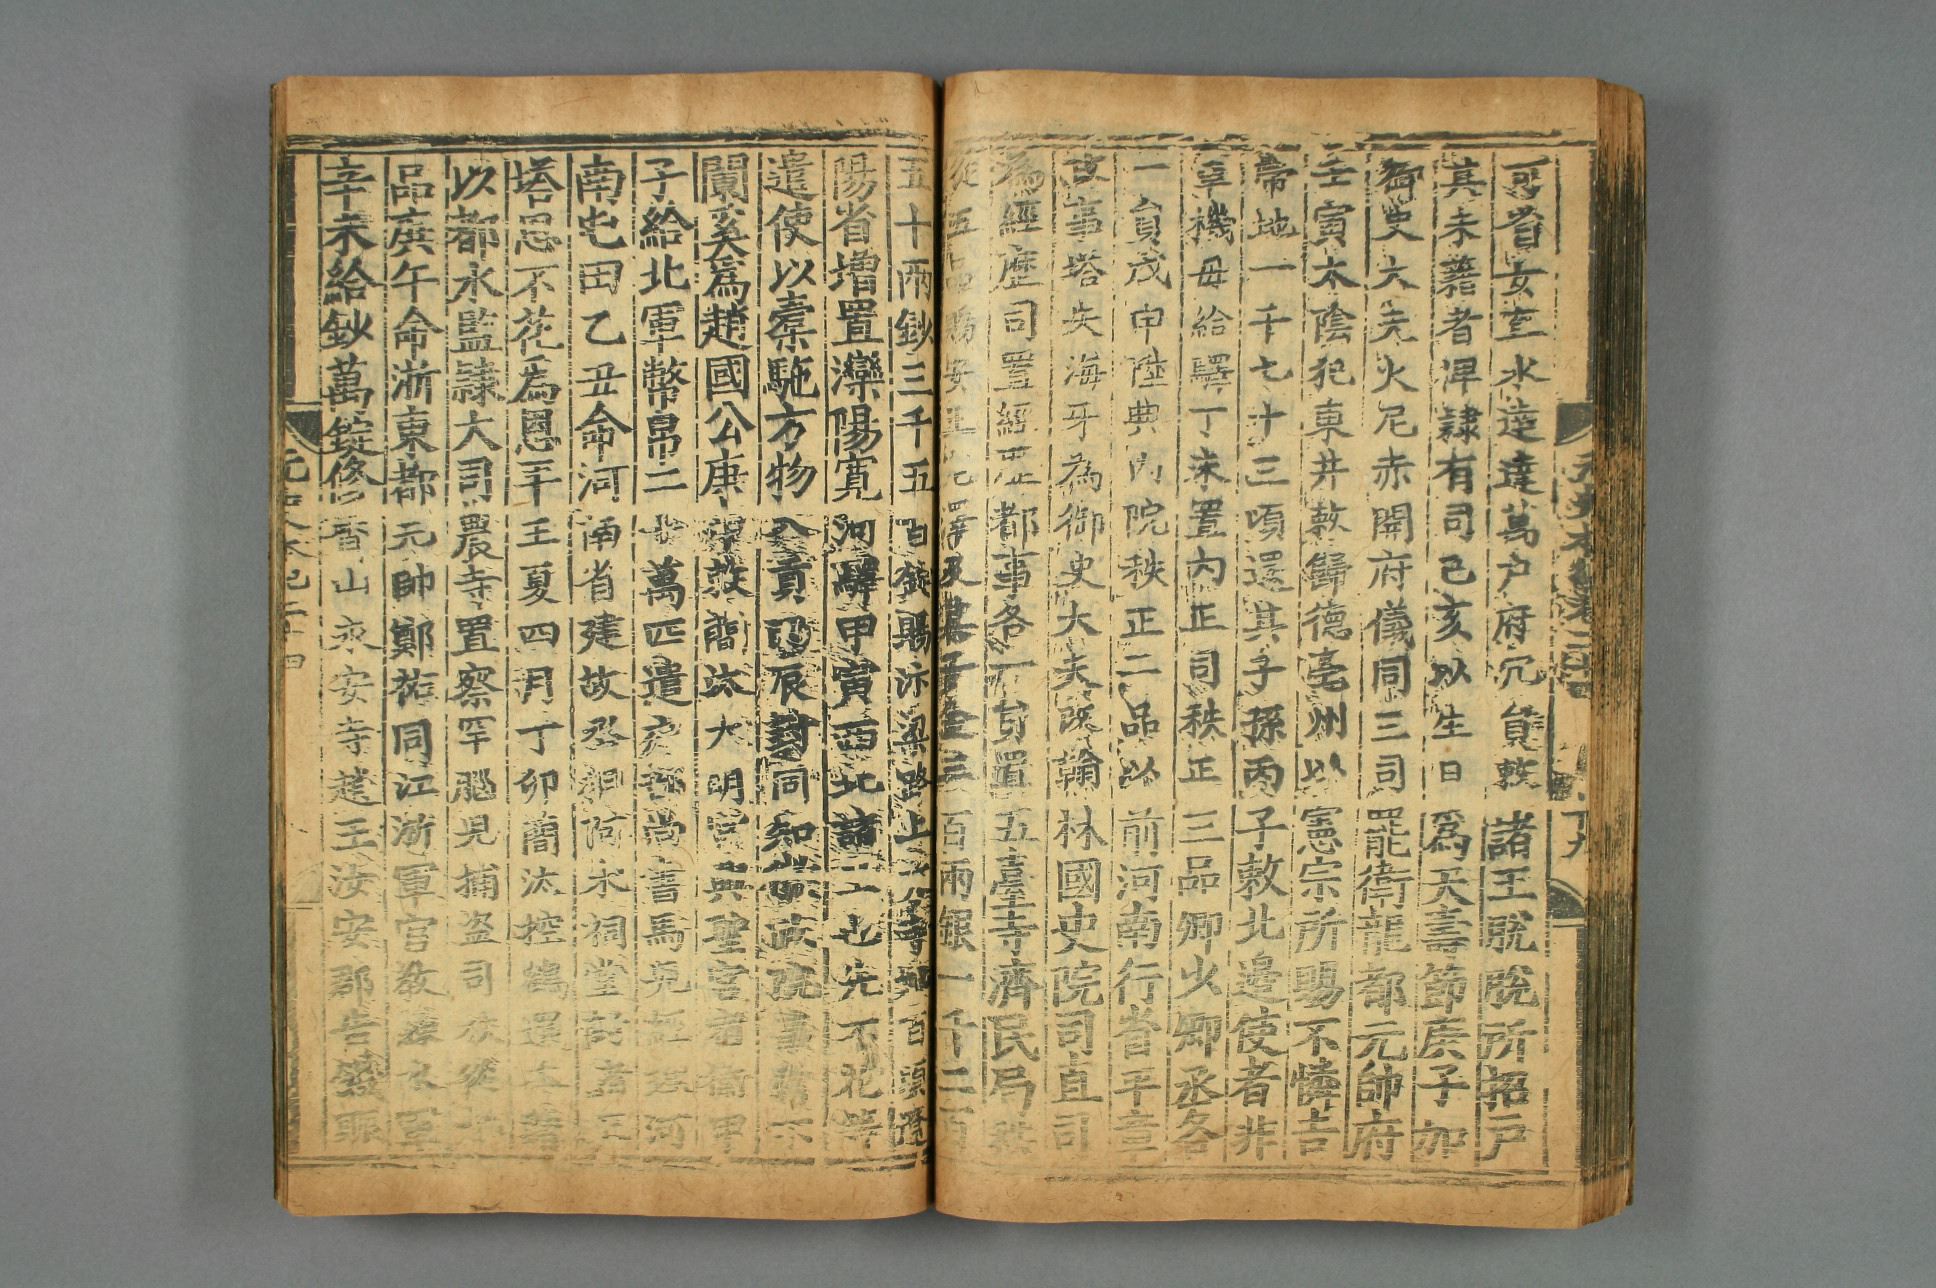 元史本紀卷二十四 十九
司省女直水達達萬户府冗員敕諸王脫脫所招戶
其未籍者俾隸有司己亥以生日為天壽節庚子加
御史大夫火尼赤開府儀同三司罷衛龍都元帥府
壬寅太陰犯東井敕歸德亳州以憲宗所賜不憐吉
帶地一千七十三頃還其子孫丙子敕北邊使者非
軍機毋給驛丁未置內正司秩正三品卿少卿丞各
一員戊申陞典內院秩正二品以前河南行省平章
政事塔失海牙為御史大夫改翰林國史院司直司
為經歷司置經歷都事各一員置五臺寺濟民局秩
從五品賜安王完澤及其子金三百兩銀一千二百
五十兩鈔三千五百錠賜汴梁路上方寺地百頃遼
陽省增置灤陽寬河驛甲寅西北諸王也先不花等
遣使以橐駞方物入貢丙辰封同知徽政院事常不
闌奚為趙國公庚申敕簡汰大明宮興聖宮宿衛甲
子給北軍幣帛二十萬匹遣戶部尚書馬兒經理河
南屯田乙丑命河南省建故丞相阿朮祠堂封諸王
塔思不花為恩平王夏四月丁卯簡汰控鶴還本籍
以都水監隸大司農寺置察罕腦兒捕盜司秩從七
品庚午命浙東都元帥鄭祐同江浙軍官教練水軍
辛未給鈔萬錠修香山永安寺趙王汝安郡告饑賑
元史本紀二十四